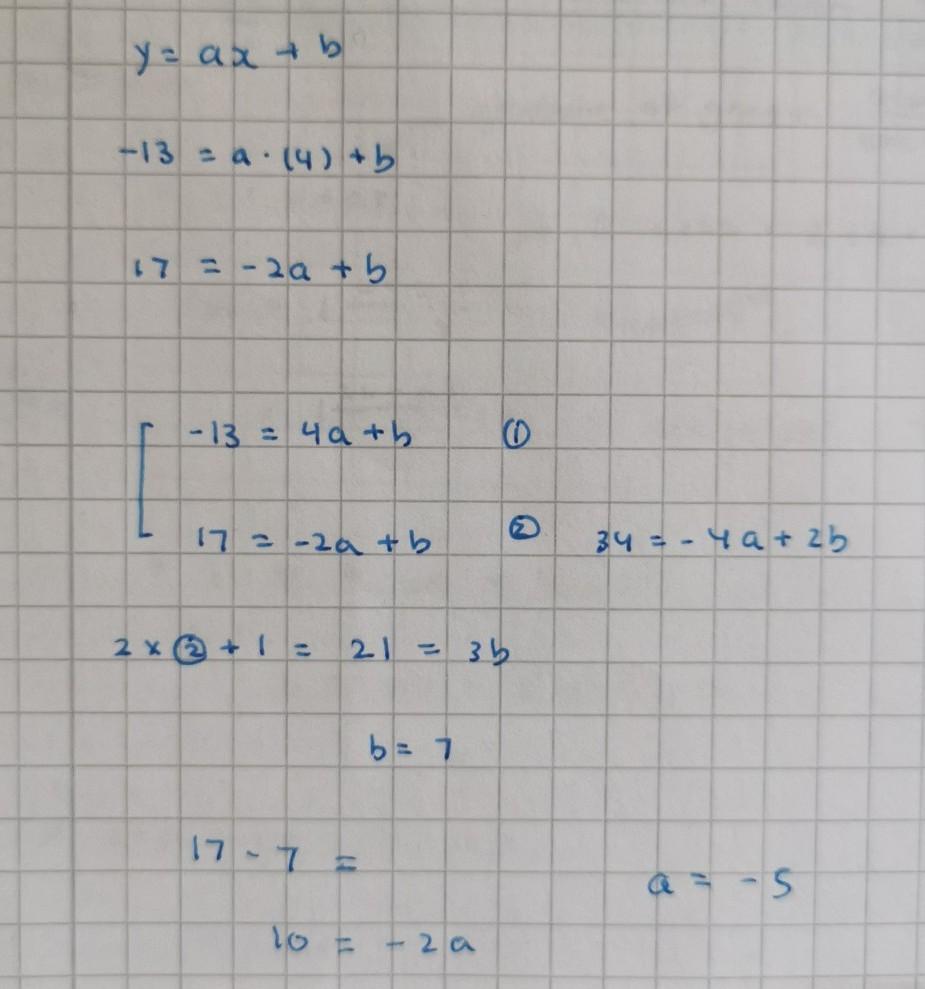 y = ax + b
-13 = a · (4) + b
17 = -2a + b
-13 = 4a + b ①
17 = -2a + b ② 34 = - 4a + 2b
2 × ② + 1 = 21 = 3b
b = 7
17 - 7 =
a = - 5
10 = - 2a